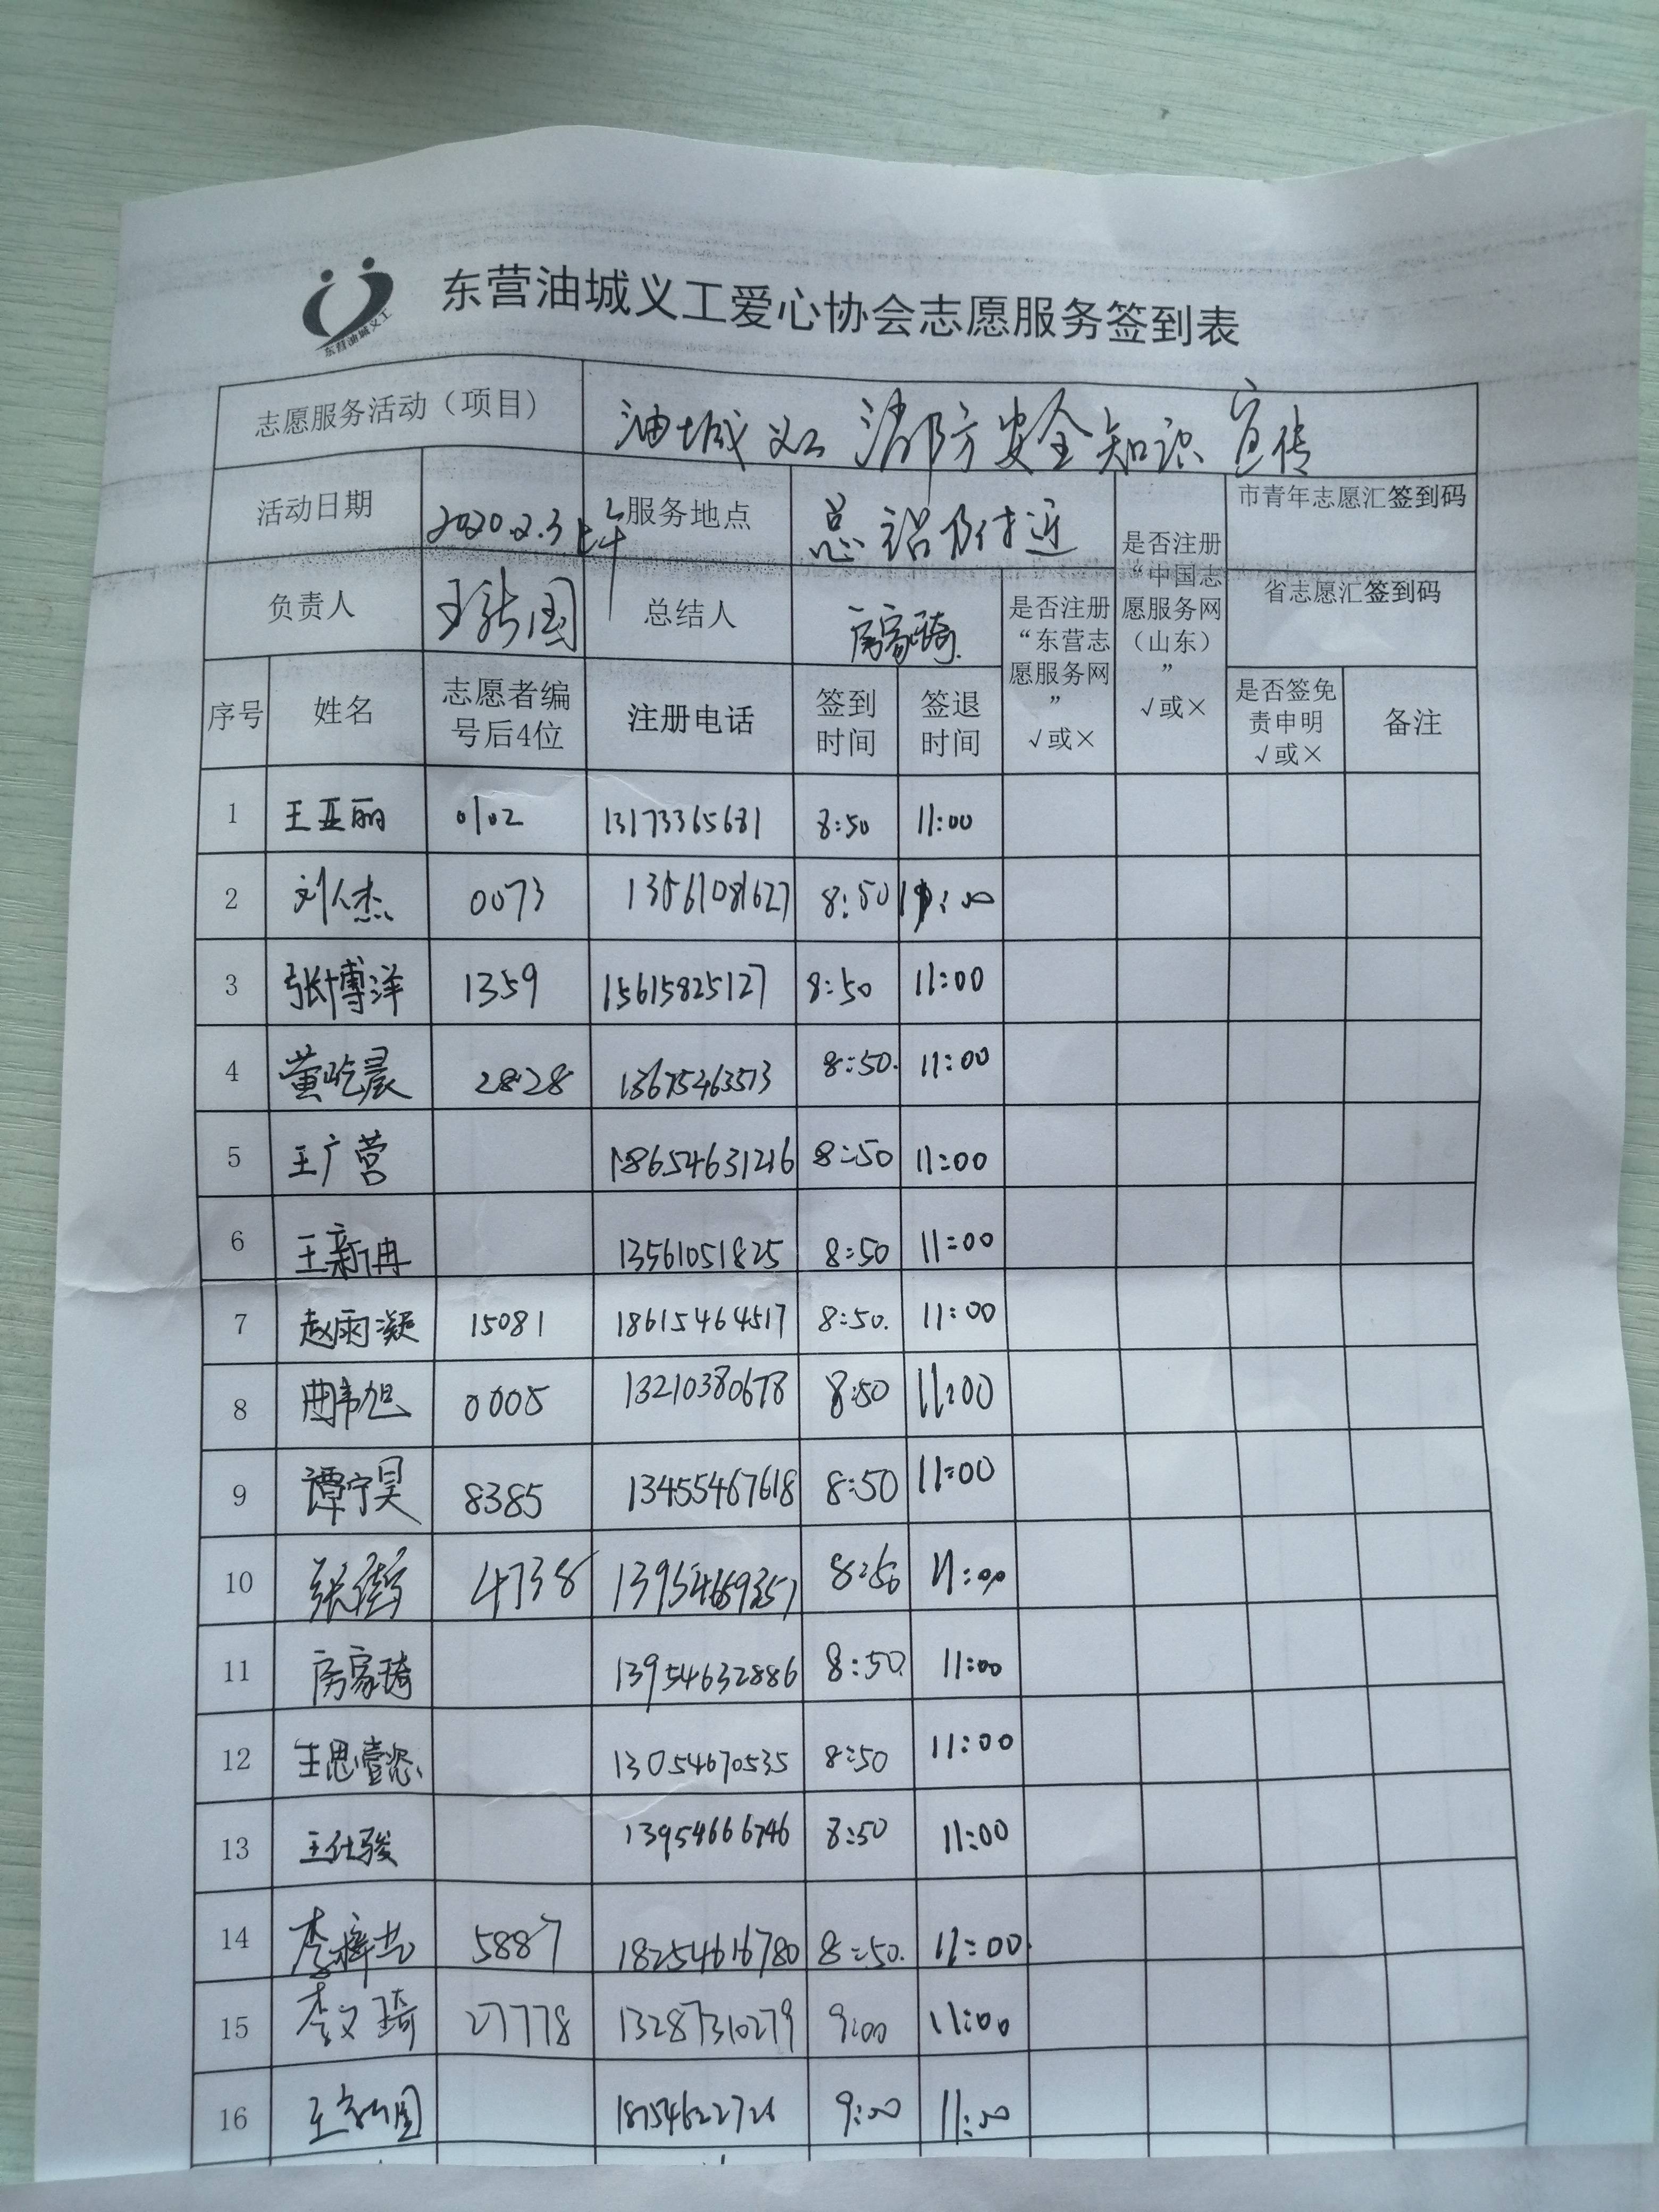 东营油城义工
东营油城义工爱心协会志愿服务签到表
志愿服务活动（项目） 油城义工消防安全知识宣传
活动日期 服务地点 附近 市青年志愿汇签到码
负责人 总结人 房家琦 省志愿汇签到码
是否注册“东营志愿服务网” √或×
是否注册“中国志愿服务网（山东）” √或×
序号 姓名 志愿者编号后4位 注册电话 签到时间 签退时间 是否签免责申明 √或× 备注
1 王亚丽 0102 13173365681 8:50 11:00
2 刘人杰 0073 13561081627 8:50
3 张博洋 1359 15615825127 8:50 11:00
4 2828 13675463573 8:50. 11:00
5 王广营 18654631216 8:50 11:00
6 王新冉 13561051825 8:50 11:00
7 赵雨凝 15081 18615464517 8:50. 11:00
8 0005 13210380678 8:50 11:00
9 谭宁昊 8385 13455467618 8:50 11:00
10 4738 8:50 11:00
11 房家琦 13954632886 8:50. 11:00
12 13054670535 8:50 11:00
13 王仕骏 13954666746 8:50 11:00
14 5887 18254616780 8:50. 11:00.
15 李文琦 27778 13287310279 9:00 11:00
16 9:00 11:00